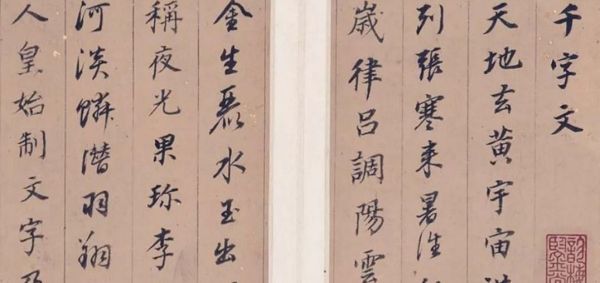 千字文
天地玄黃宇宙洪
列張寒来暑往
歲律呂調陽雲
金生麗水玉出
稱夜光果珍李
河淡鱗潛羽翔
人皇始制文字乃